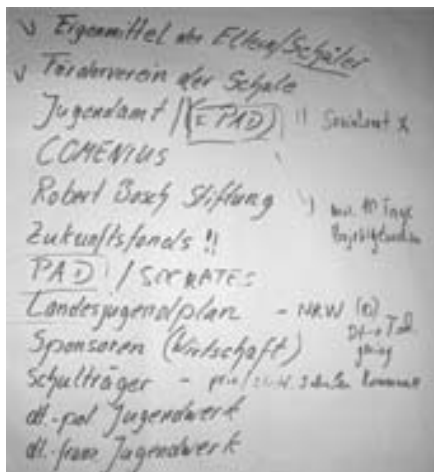 Eigenmittel der Eltern/Schüler
Förderverein der Schule
Jugendamt / PAD) !! Sozialamt
COMENIUS
Robert Bosch Stiftung 10 Tage
Zukunftsfonds !!
PAD / SOCRATES
Landesjugendplan - NRW
Sponsoren (Wirtschaft)
Schulträger - Kommune
dt.-pol Jugendwerk
dt.-franz Jugendwerk